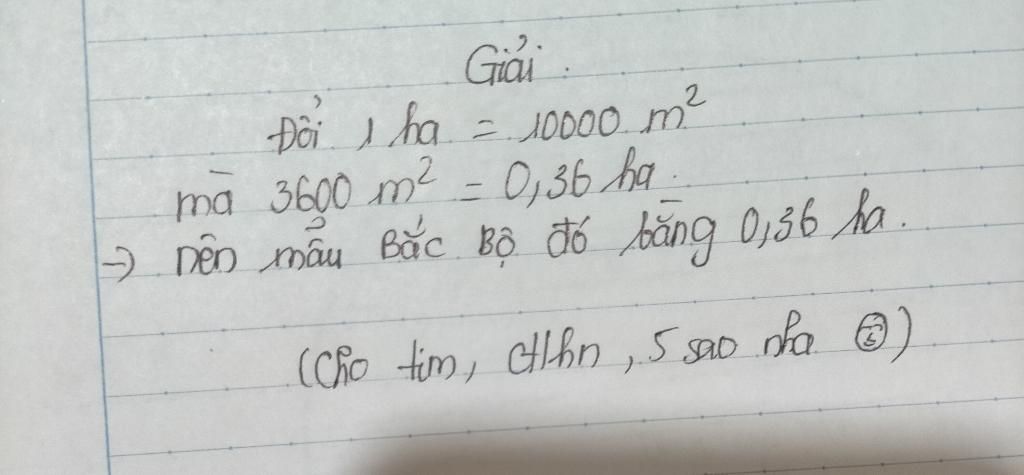 Giải.
Đổi 1 ha = 10000 m²
mà 3600 m² = 0,36 ha.
→ nên mẫu Bắc Bộ đó bằng 0,36 ha.
(Cho tim, ctlhn, 5 sao nha)